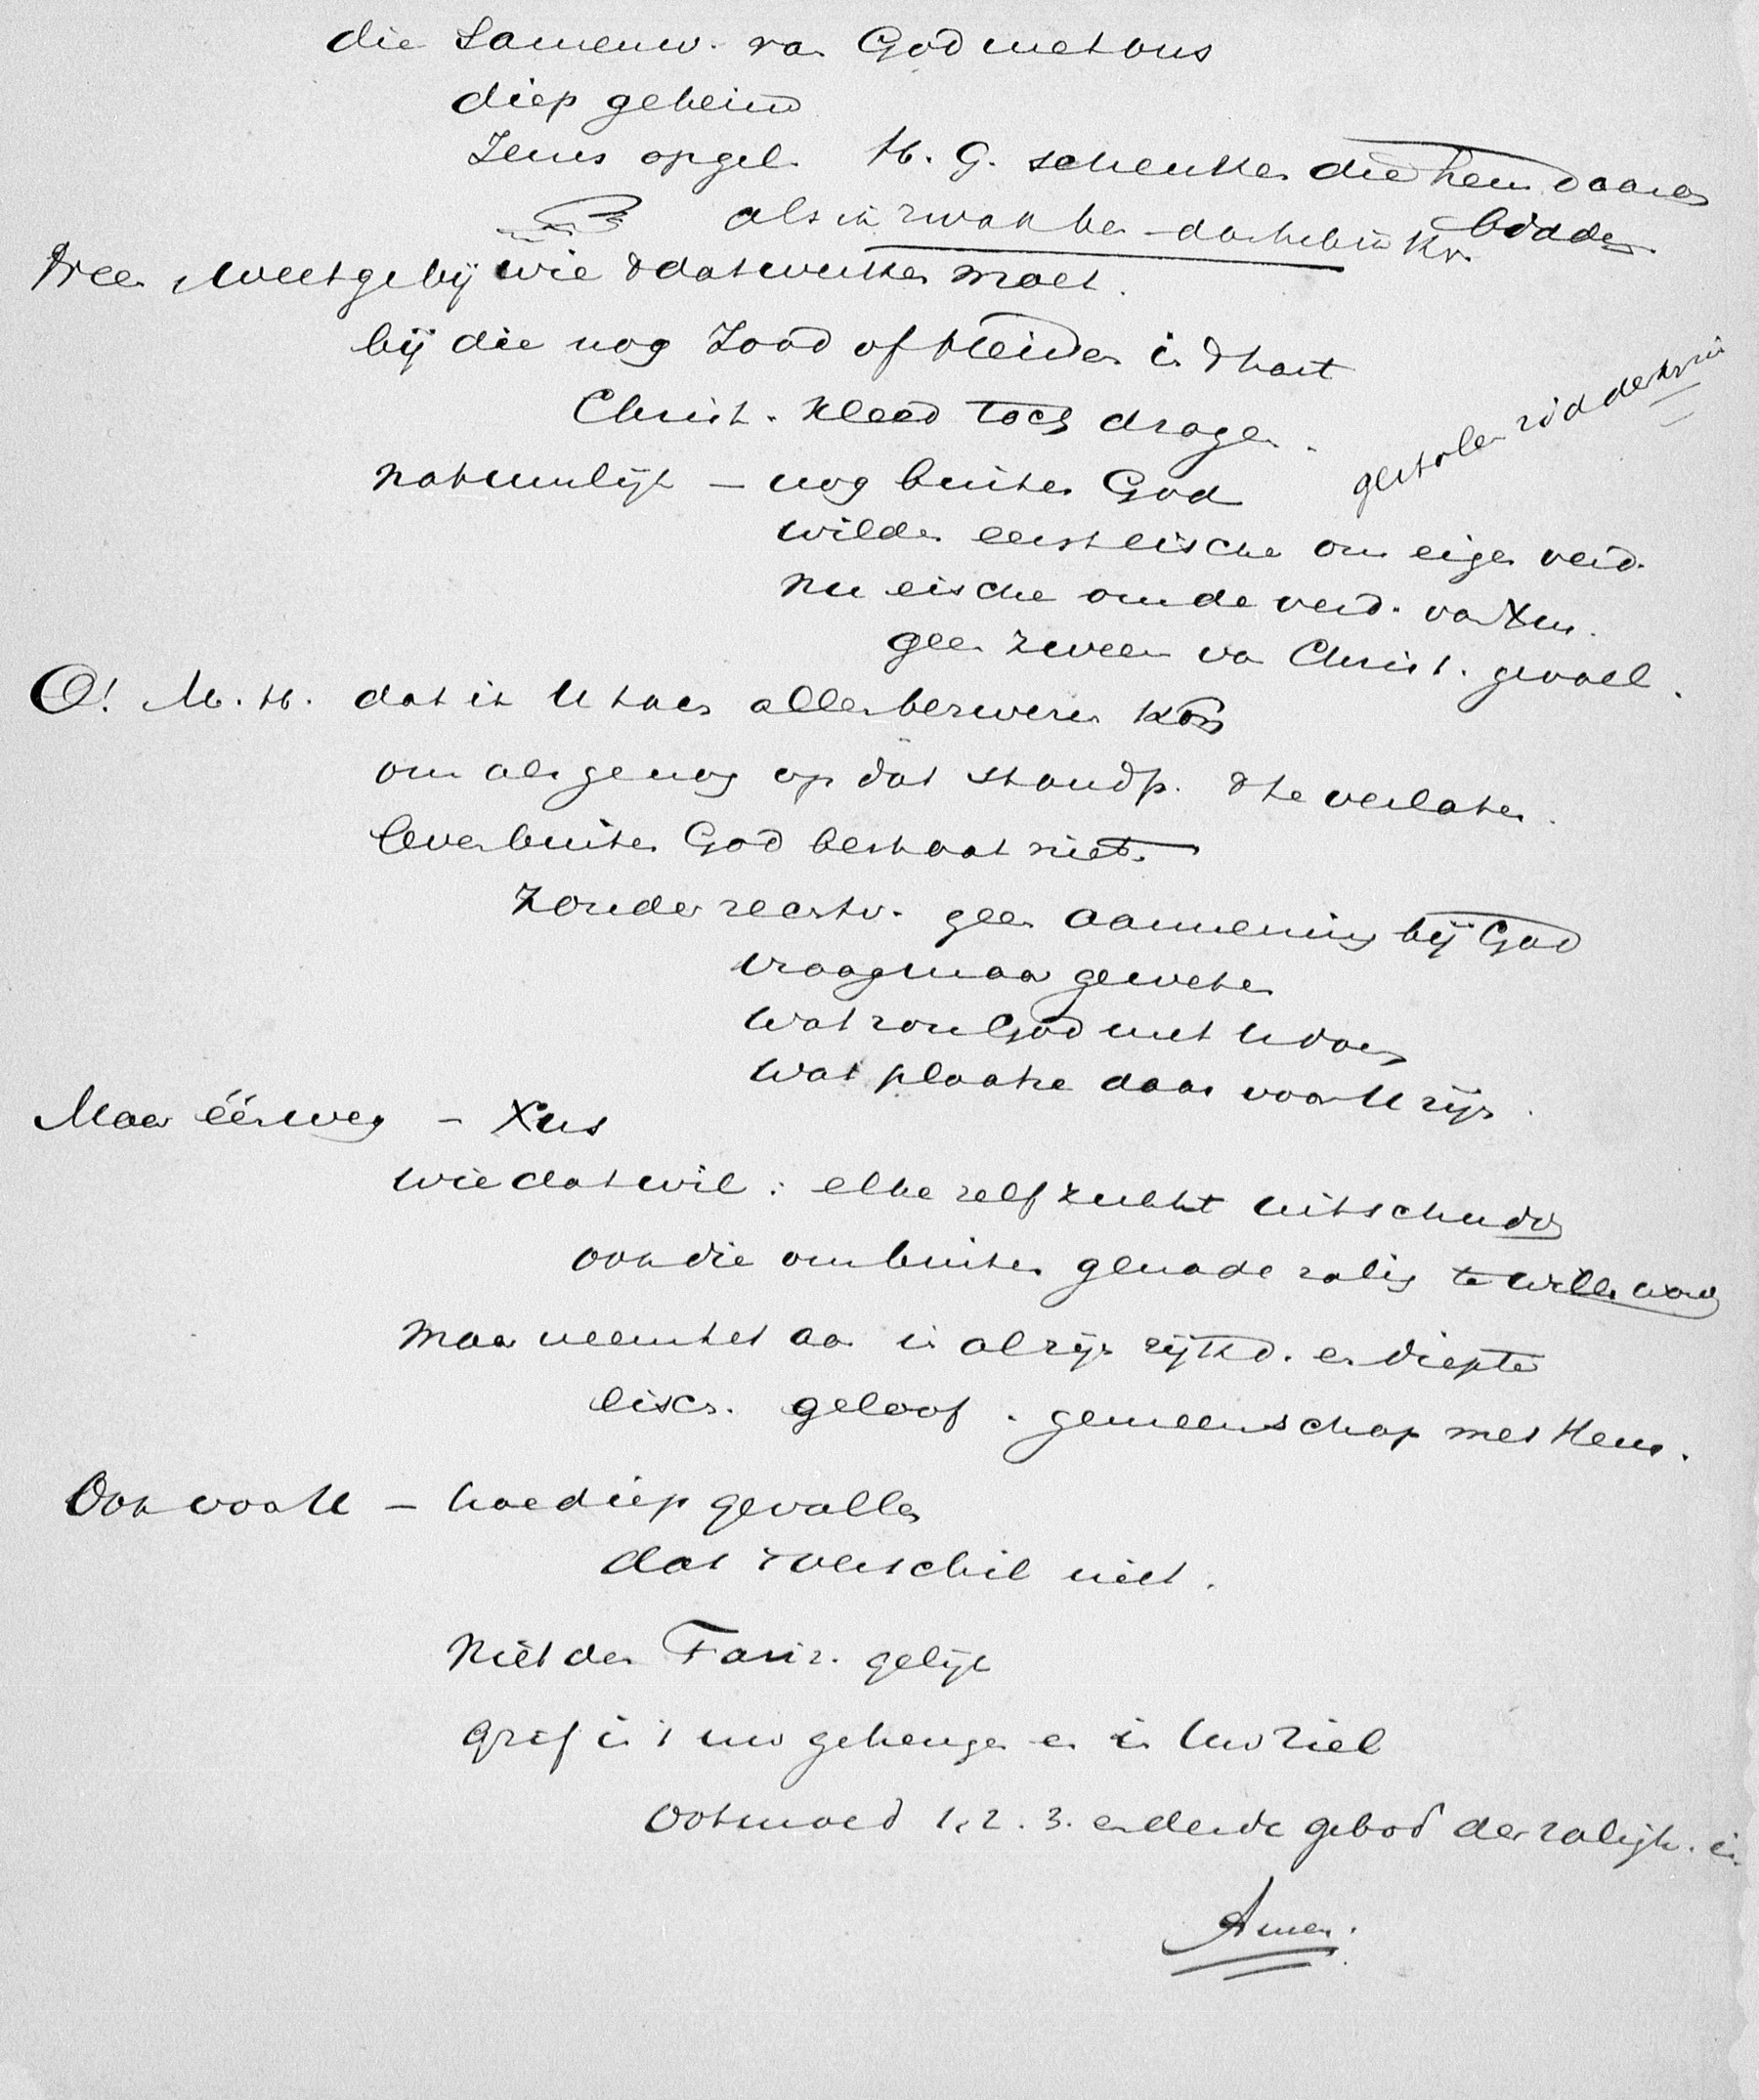 die Samenw. van God met ons
diep geheim
Jezus opgel. H. G. schenken die hem daarom bidden
als ik zwak ben – dan heb ik kr.
Neen weet ge bij wie dat werken moet.
bij die nog Jood of Heiden in 't hart
Christ. kleed toch dragen.
gestolen ridderkruis
natuurlijk – nog buiten God
wilden eerst eischen om eigen verd.
nu eischen om de verd. van Xus.
geen zweem van Christ. gevoel.
O! M. H. dat ik U toch allen bezweren kon
om als ge nog op dat standp. te verlaten.
leven buiten God bestaat niet.
Zonder geen aanneming bij God
vraag maar geweten
wat zou God met U doen
wat plaatse daar voor U zijn.
Maar één weg – Xus
wie dat wil: elke zelfzucht uitschudden
ook die om buiten genade zalig te willen worden
maar neem het aan in al zijn rijkd. en diepte
eisch. geloof. gemeenschap met Hem.
Ook voor U – hoe diep gevallen
dat verschil niet.
Niet den Fariz. gelijk
grif in in uw geheugen en in Uw ziel
Ootmoed 1. 2. 3. en derde gebod der zaligh. is
Amen.